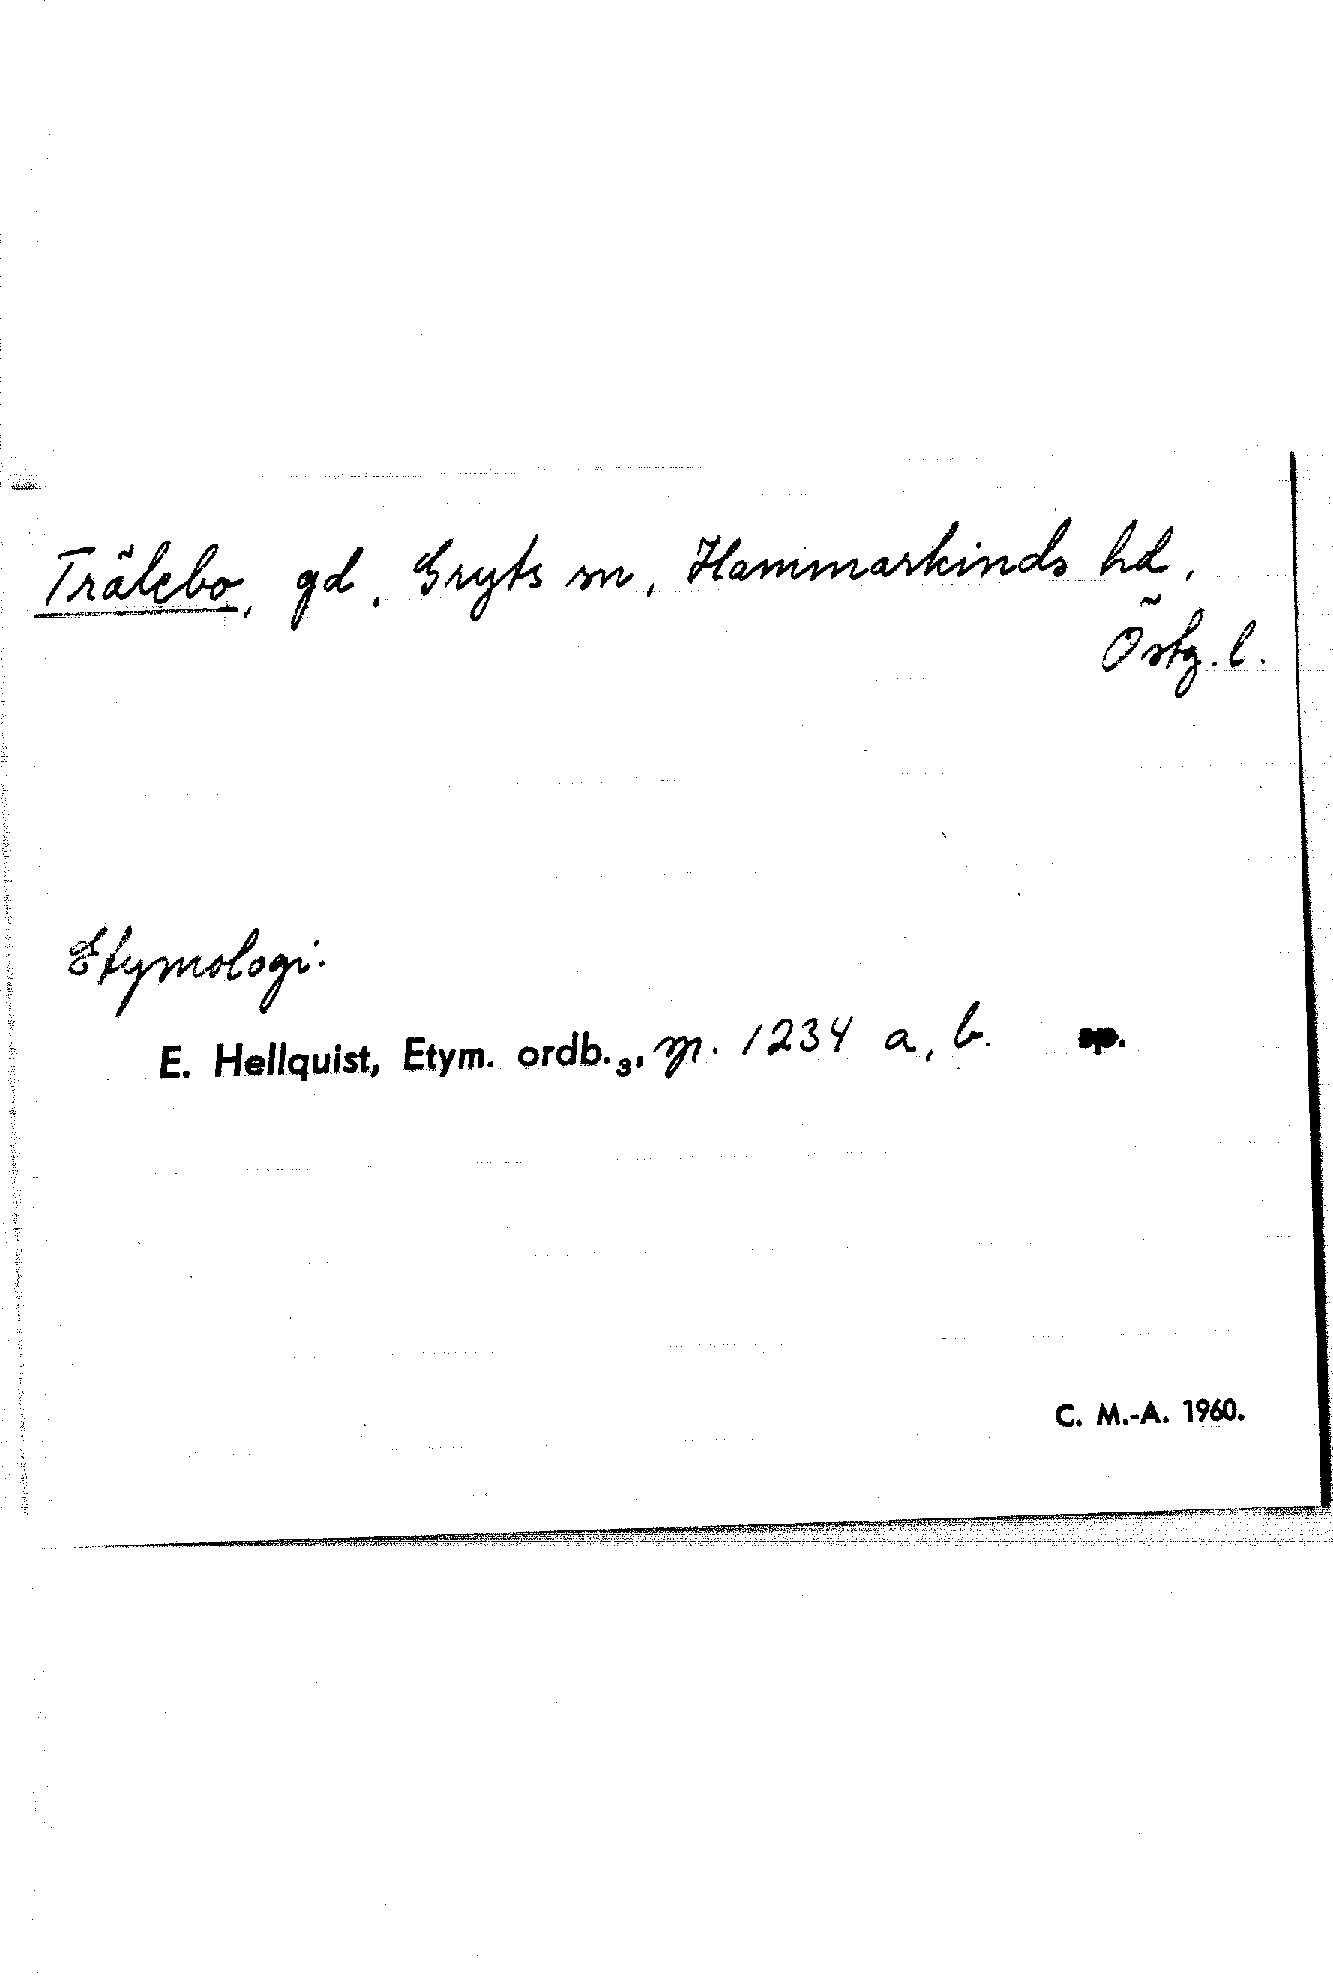 Trälebo, gd, Gryts sn, Hammarkinds hd,
Östg. l.
Etymologi.
E. Hellquist, Etym. ordb.3, sp. 1234 a, b. sp.
C. M.-A. 1960.